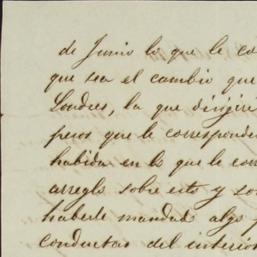 de Junio lo que le co
que sea el cambio que
Londres, la que dirigire
pesos que le corresponde
habida en lo que le corr
arreglo sobre esto y so
haberle mandado algo
conductas del interior